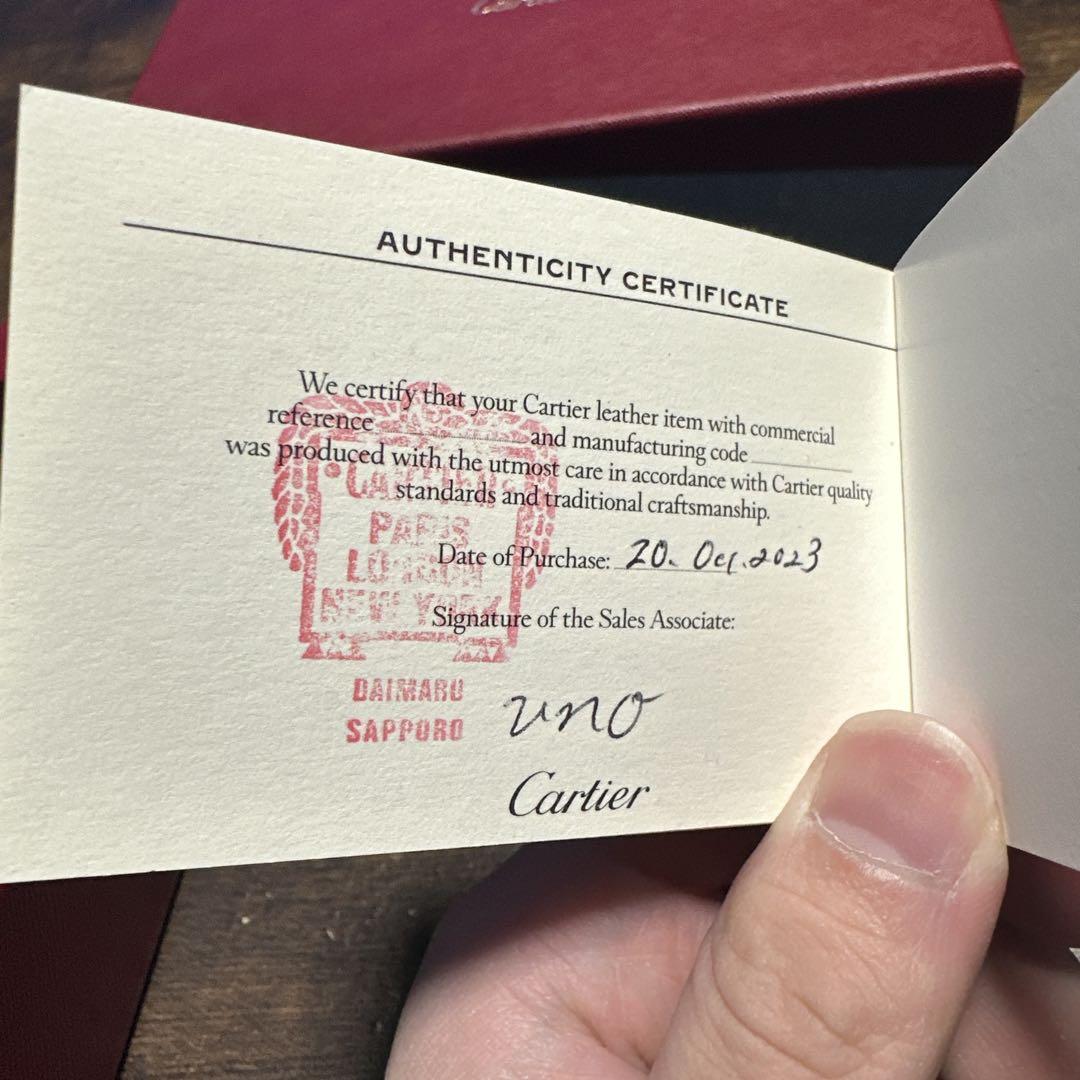 AUTHENTICITY CERTIFICATE
We certify that your Cartier leather item with commercial
reference and manufacturing code
was produced with the utmost care in accordance with Cartier quality
standards and traditional craftsmanship.
Date of Purchase: 20. Oct. 2023
Signature of the Sales Associate:
CARTIER
PARIS
LONDON
NEW YORK
DAIMARU
SAPPORO
uno
Cartier